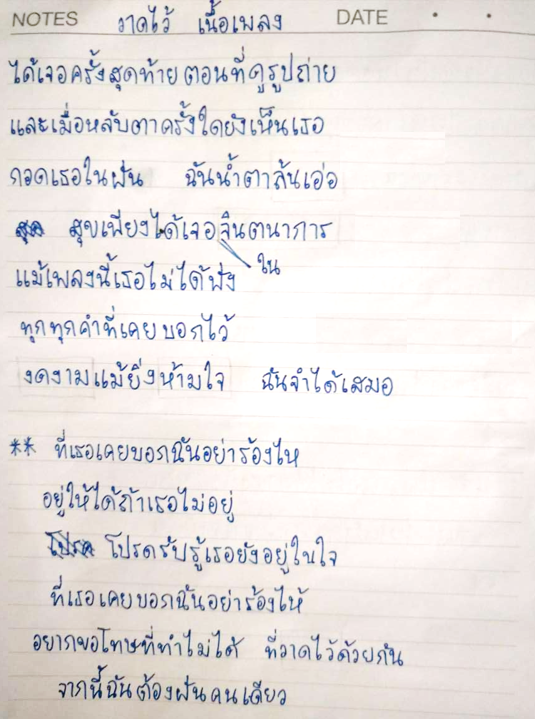 NOTES วาดไว้ เนื้อเพลง DATE
ได้เจอครั้งสุดท้ายตอนที่ดูรูปถ่าย
และเมื่อหลับตาครั้งใดยังเห็นเธอ
กอดเธอในฝัน ฉันน้ำตาล้นเอ่อ
สุขเพียงได้เจอจินตนาการ
ใน
แม้เพลงนี้เธอไม่ได้ฟัง
ทุกทุกคำที่เคยบอกไว้
งดงามแม้ยิ่งห้ามใจ ฉันจำได้เสมอ
** ที่เธอเคยบอกฉันอย่าร้องไห
อยู่ให้ได้ถ้าเธอไม่อยู่
โปรดรับรู้เธอยังอยู่ในใจ
ที่เธอเคยบอกฉันอย่าร้องไห้
อยากขอโทษที่ทำไม่ได้ ที่วาดไว้ด้วยกัน
จากนี้ฉันต้องฝันคนเดียว